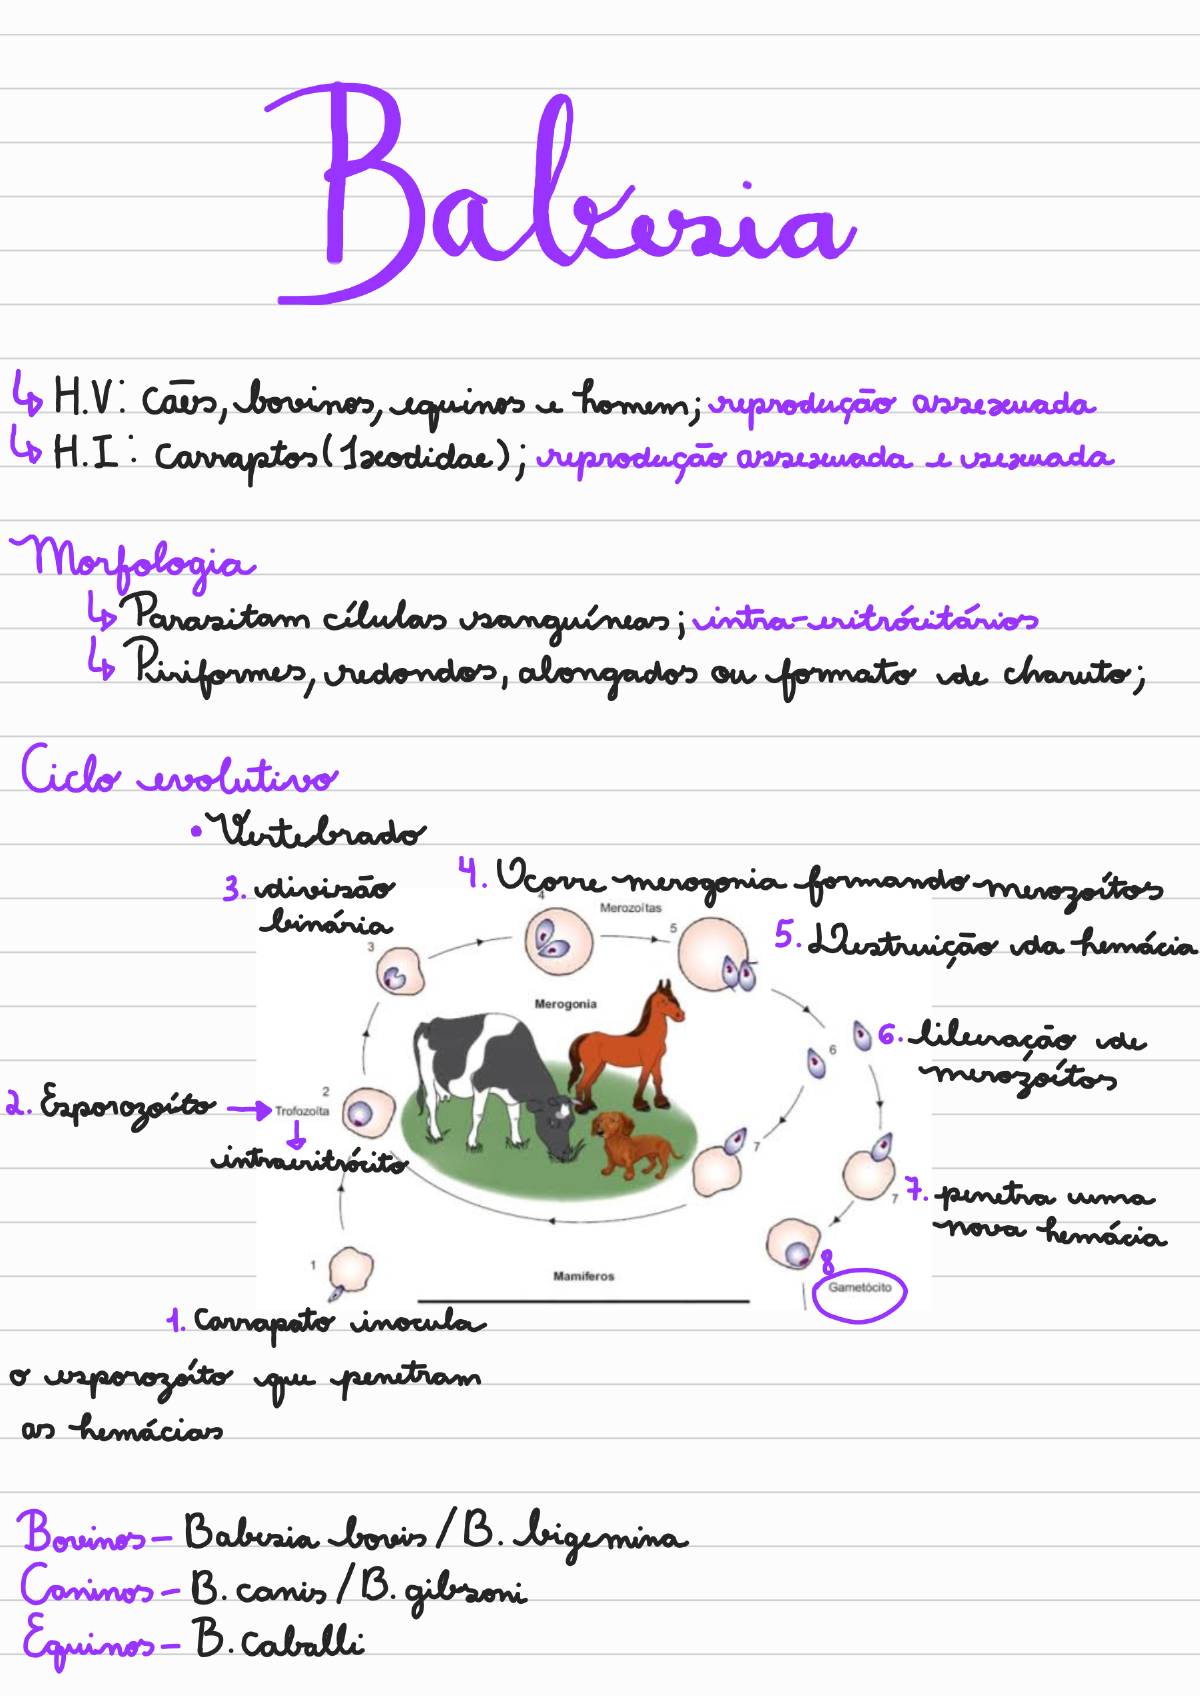 Babesia
↳ H.V: Cães, bovinos, equinos e homem; reprodução assexuada
↳ H.I: Carrapatos (Ixodidae); reprodução assexuada e sexuada
Morfologia
↳ Parasitam células sanguíneas; intra-eritrócitários
↳ Piriformes, redondos, alongados ou formato de charuto;
Ciclo evolutivo
• Vertebrado
3. divisão
binária
4. Ocorre merogonia formando merozoítos
4
Merozoítas
5
5. Destruição da hemácia
3
Merogonia
6
6. liberação de
merozoítos
2
2. Esporozoíto → Trofozoíta
↓
intraeritrócito
7
7
7. penetra uma
nova hemácia
1
Mamíferos
8
Gametócito
1. Carrapato inocula
o esporozoíto que penetram
as hemácias
Bovinos - Babesia bovis / B. bigemina
Caninos - B. canis / B. gibsoni
Equinos - B. caballi